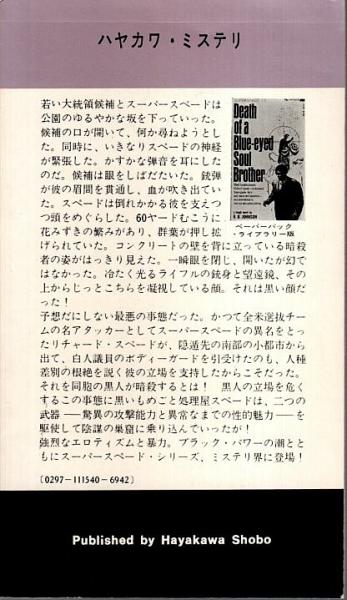 ハヤカワ・ミステリ
若い大統領候補とスーパースペードは
公園のゆるやかな坂を下っていった。
候補の口が開いて、何か尋ねようとし
た。同時に、いきなりスペードの神経
が緊張した。かすかな弾音を耳にした
のだ。候補は眼をしばだたいた。銃弾
が彼の眉間を貫通し、血が吹き出てい
た。スペードは倒れかかる彼を支えつ
つ頭をめぐらした。60ヤードむこうに
花みずきの繁みがあり、群葉が押し拡
げられていた。コンクリートの壁を背に立っている暗殺
者の姿がはっきり見えた。一瞬眼を閉じ、開いたが幻で
はなかった。冷たく光るライフルの銃身と望遠鏡、その
上からじっとこちらを凝視している顔。それは黒い顔だ
った！
予想だにしない最悪の事態だった。かつて全米選抜チー
ムの名アタッカーとしてスーパースペードの異名をとっ
たリチャード・スペードが、隠遁先の南部の小都市から
出て、白人議員のボディーガードを引受けたのも、人種
差別の根絶を説く彼の立場を支持したからこそだった。
それを同胞の黒人が暗殺するとは！　黒人の立場を危く
するこの事態に黒いもめごと処理屋スペードは、二つの
武器──驚異の攻撃能力と異常なまでの性的魅力──を
駆使して陰謀の巣窟に乗り込んでいったが！
強烈なエロティズムと暴力。ブラック・パワーの潮とと
もにスーパースペード・シリーズ、ミステリ界に登場！
Death
of a
Blue-eyed
Soul
Brother
B. B. JOHNSON
ペーパーバック
・ライブラリー版
〔0297-111540-6942〕
Published by Hayakawa Shobo